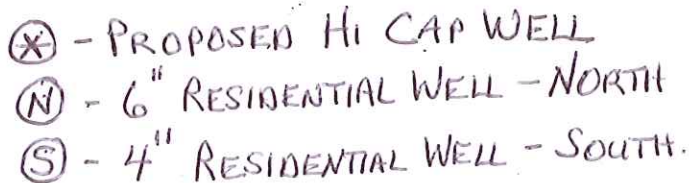 Ⓧ - PROPOSED HI CAP WELL
Ⓝ - 6" RESIDENTIAL WELL - NORTH
Ⓢ - 4" RESIDENTIAL WELL - SOUTH.